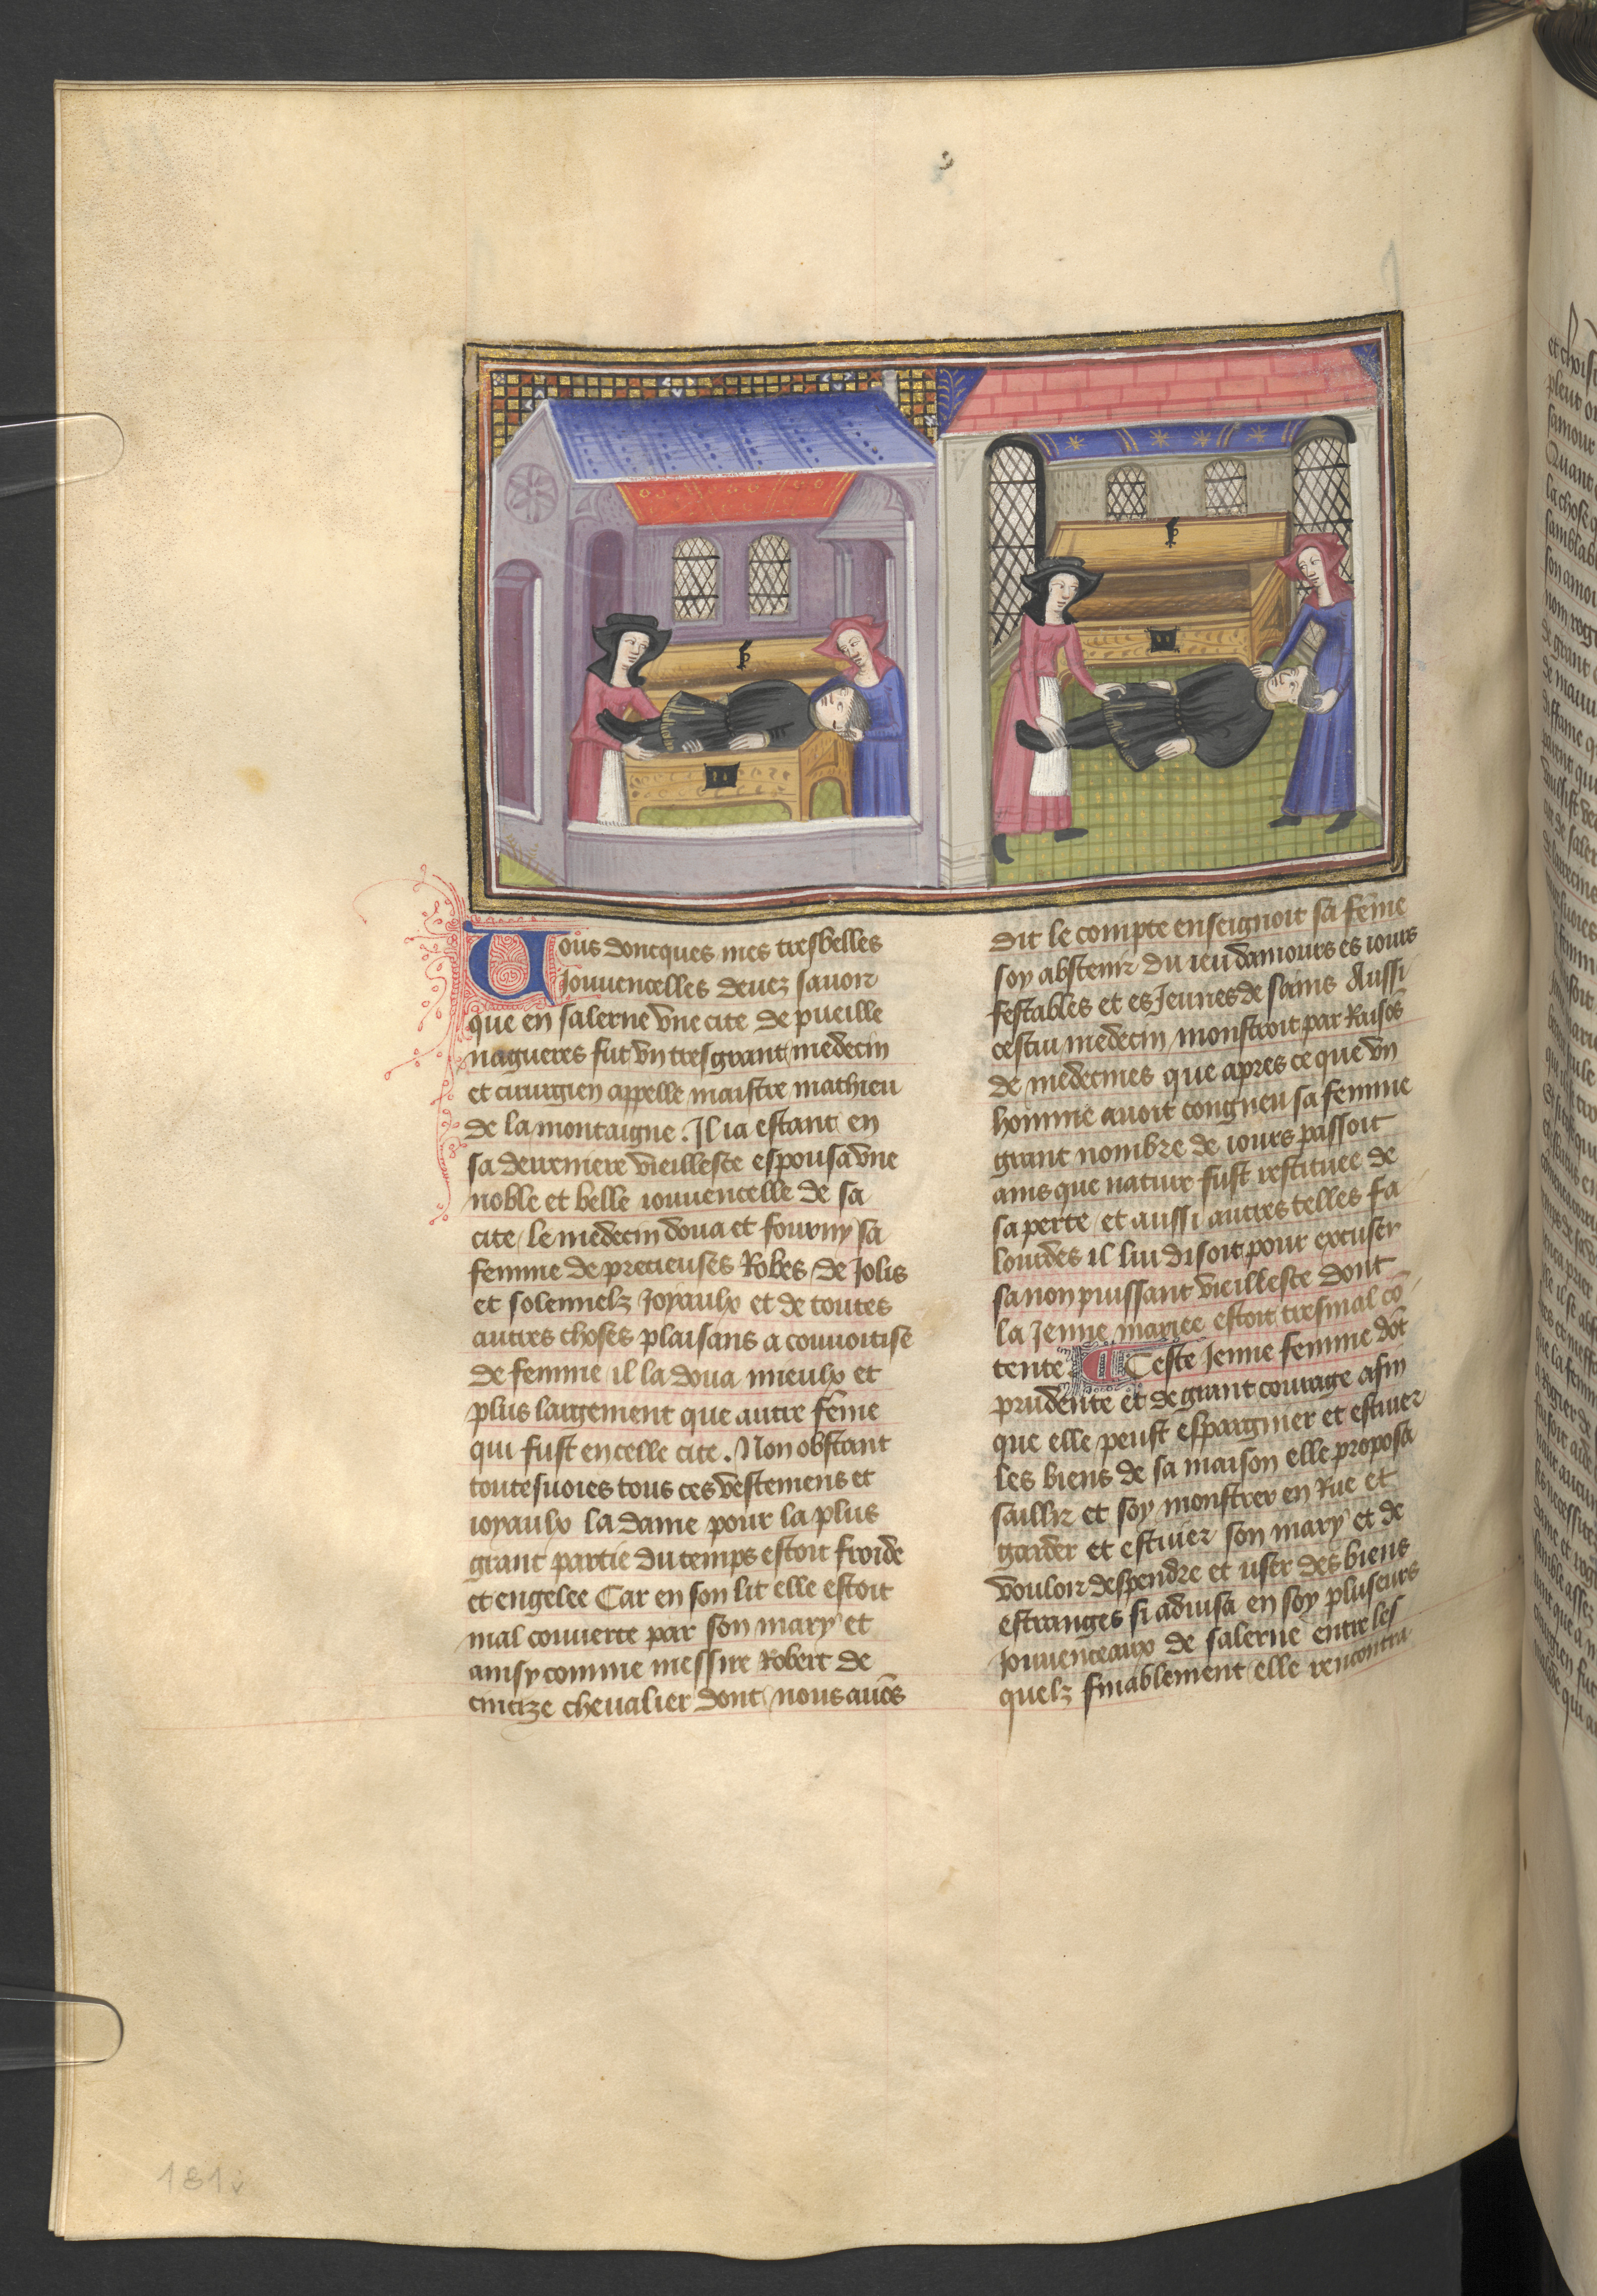 Uous doncques mes tresbelles
Jouuencelles deuez sauoir
que en salerne vne cite de pueille
nagueres fut vn tresgrant medecin
et cirurgien appelle maistre mathieu
de la montaigne. Il ia estant en
sa derreniere vieillesce espousa vne
noble et belle iouuencelle de sa
cite / le medecin doua et fourny sa
femme de precieuses Robes / de Jolis
et solennelz Joyaulx et de toutes
autres choses plaisans a couuoitise
de femme / il la doua mieulx et
plus largement que autre féme
qui fust en celle cite. Non obstant
toutesuoies tous ces vestemens et
ioyaulx la dame pour la plus
grant partie du temps estoit froide
et engelee Car en son lit elle estoit
mal couuerte par son mary et
ainsy comme messire Robert de
cincize cheualier dont nous auōs
dit le compte enseignoit sa féme
soy abstenir du ieu damours es iours
festables et es Jeunes de sains Aussi
cestui medecin monstroit par Raisōs
de medecines que apres ce que vn
homme auoit congneu sa femme
grant nombre de iours passoit
ains que nature fust restituee de
sa perte / et aussi autres telles fa
lourdes il lui disoit pour excuser
sa non puissant vieillesce dont
la Jenne mariee estoit tresmal cō
tente Ceste Jenne femme dōt
prudente et de grant courage afin
que elle peust espargnier et estuier
les biens de sa maison elle proposa
saillir et soy monstrer en Rue et
garder et estuier son mary et de
vouloir despendre et user des biens
estranges si aduisa en soy pluseurs
Jouuenceaux de salerne entre les
quelz finablement elle rencontra
181v